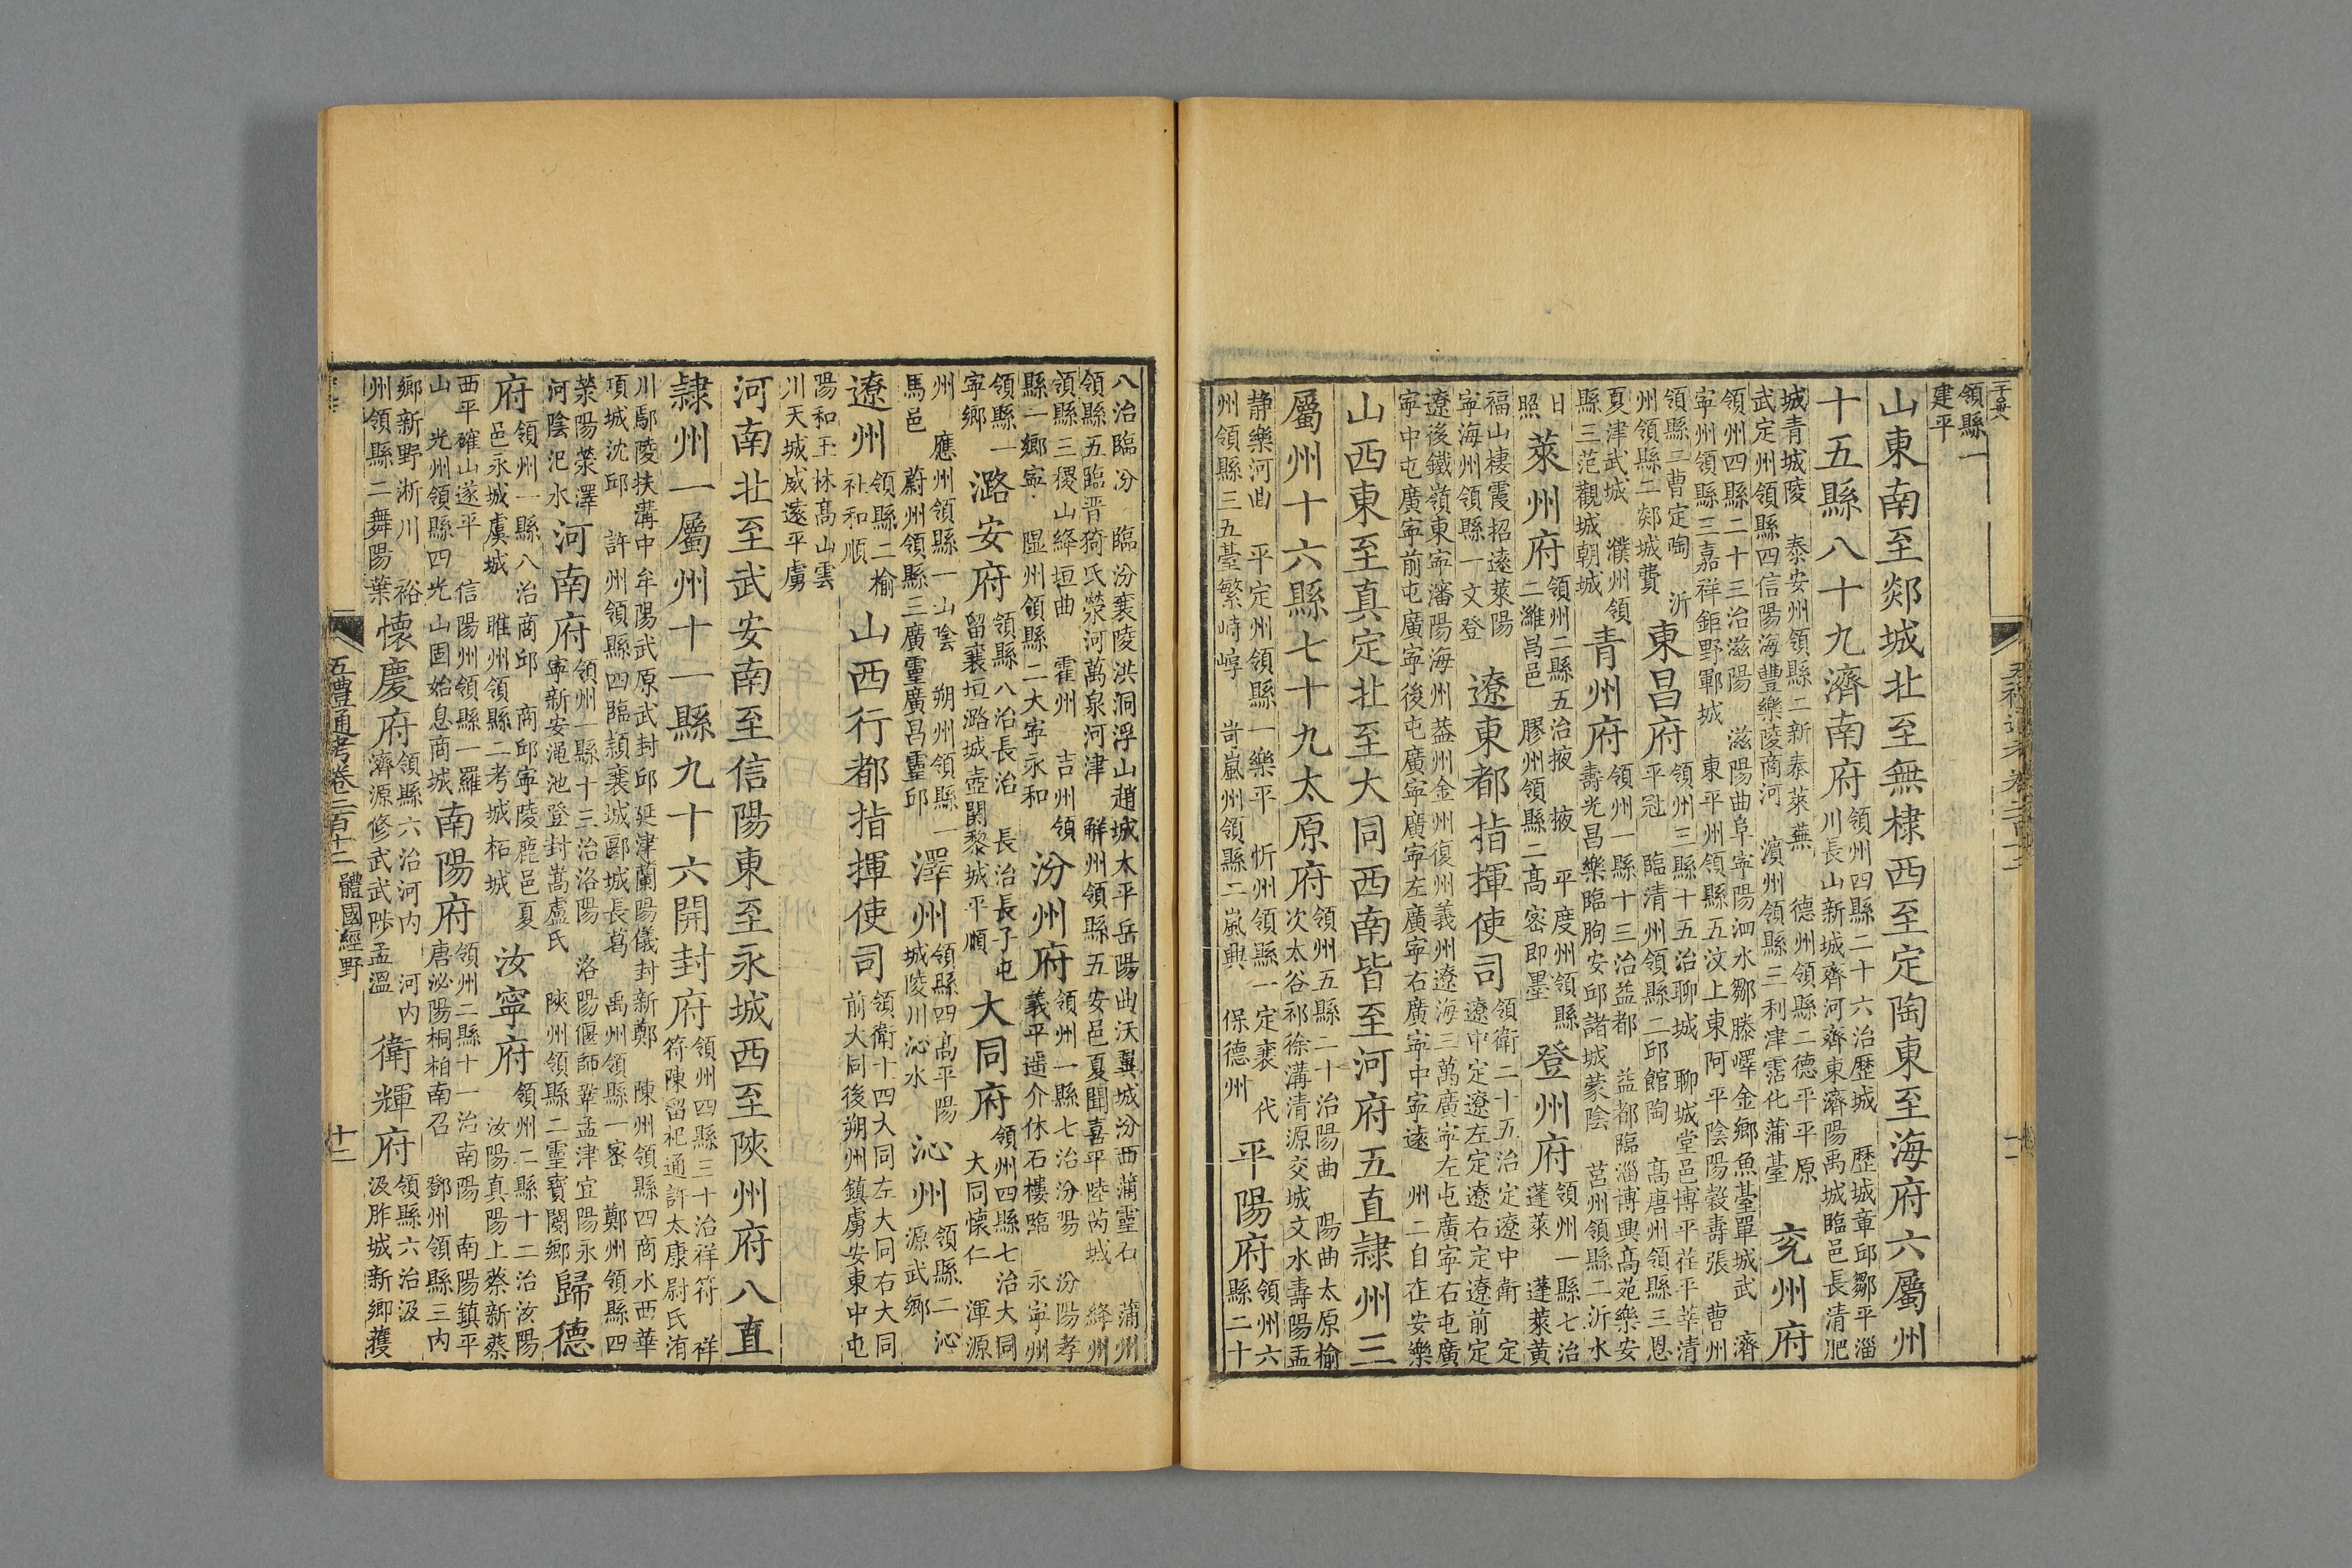 領縣一
建平
山東南至郯城北至無棣西至定陶東至海府六屬州
十五縣八十九濟南府
領州四縣二十六治歷城 歷城章邱鄒平淄
川長山新城齊河齊東濟陽禹城臨邑長清肥
城青城陵 泰安州領縣二新泰萊蕪 德州領縣二德平平原
武定州領縣四信陽海豐樂陵商河 濱州領縣三利津霑化蒲臺
兗州府
領州四縣二十三治滋陽 滋陽曲阜寧陽泗水鄒滕嶧金鄉魚臺單城武 濟
寧州領縣三嘉祥鉅野鄆城 東平州領縣五汶上東阿平陰陽穀壽張 曹州
領縣二曹定陶 沂
州領縣二郯城費
東昌府
領州三縣十五治聊城 聊城堂邑博平茌平莘清
平冠 臨清州領縣二邱館陶 高唐州領縣三恩
夏津武城 濮州領
縣三范觀城朝城
青州府
領州一縣十三治益都 益都臨淄博興高苑樂安
壽光昌樂臨朐安邱諸城蒙陰 莒州領縣二沂水
日
照
萊州府
領州二縣五治掖 掖 平度州領縣
二濰昌邑 膠州領縣二高密即墨
登州府
領州一縣七治
蓬萊 蓬萊黃
福山棲霞招遠萊陽
寧海州領縣一文登
遼東都指揮使司
領衛二十五治定遼中衛 定
遼中定遼左定遼右定遼前定
遼後鐵嶺東寧瀋陽海州蓋州金州復州義州遼海三萬廣寧左屯廣寧右屯廣
寧中屯廣寧前屯廣寧後屯廣寧廣寧左廣寧右廣寧中寧遠 州二自在安樂
山西東至真定北至大同西南皆至河府五直隸州三
屬州十六縣七十九太原府
領州五縣二十治陽曲 陽曲太原榆
次太谷祁徐溝清源交城文水壽陽盂
静樂河曲 平定州領縣一樂平 忻州領縣一定襄 代
州領縣三五臺繁峙崞 岢嵐州領縣二嵐興 保德州
平陽府
領州六
縣二十
八治臨汾 臨汾襄陵洪洞浮山趙城太平岳陽曲沃翼城汾西蒲靈石 蒲州
領縣五臨晋猗氏滎河萬泉河津 解州領縣五安邑夏聞喜平陸芮城 絳州
領縣三稷山絳垣曲 霍州 吉州領
縣一鄉寧 隰州領縣二大寧永和
汾州府
領州一縣七治汾陽 汾陽孝
義平遥介休石樓臨 永寧州
領縣一
寧鄉
潞安府
領縣八治長治 長治長子屯
留襄垣潞城壺關黎城平順
大同府
領州四縣七治大同
大同懷仁 渾源
州 應州領縣一山陰 朔州領縣一
馬邑 蔚州領縣三廣靈廣昌靈邱
澤州
領縣四高平陽
城陵川沁水
沁州
領縣二沁
源武鄉
遼州
領縣二榆
社和順
山西行都指揮使司
領衛十四大同左大同右大同
前大同後朔州鎮虜安東中屯
陽和玉林高山雲
川天城威遠平虜
河南北至武安南至信陽東至永城西至陜州府八直
隸州一屬州十一縣九十六開封府
領州四縣三十治祥符 祥
符陳留杞通許太康尉氏洧
川鄢陵扶溝中牟陽武原武封邱延津蘭陽儀封新鄭 陳州領縣四商水西華
項城沈邱 許州領縣四臨潁襄城郾城長葛 禹州領縣一密 鄭州領縣四
滎陽滎澤
河陰汜水
河南府
領州一縣十三治洛陽 洛陽偃師鞏孟津宜陽永
寧新安澠池登封嵩盧氏 陜州領縣二靈寶閿鄉
歸德
府
領州一縣八治商邱 商邱寧陵鹿邑夏
邑永城虞城 睢州領縣二考城柘城
汝寧府
領州二縣十二治汝陽
汝陽真陽上蔡新蔡
西平確山遂平 信陽州領縣一羅
山 光州領縣四光山固始息商城
南陽府
領州二縣十一治南陽 南陽鎮平
唐泌陽桐柏南召 鄧州領縣三内
鄉新野淅川 裕
州領縣二舞陽葉
懷慶府
領縣六治河内 河内
濟源修武武陟孟溫
衛輝府
領縣六治汲
汲胙城新鄉獲
五禮通考卷二百十二 體國經野
十二